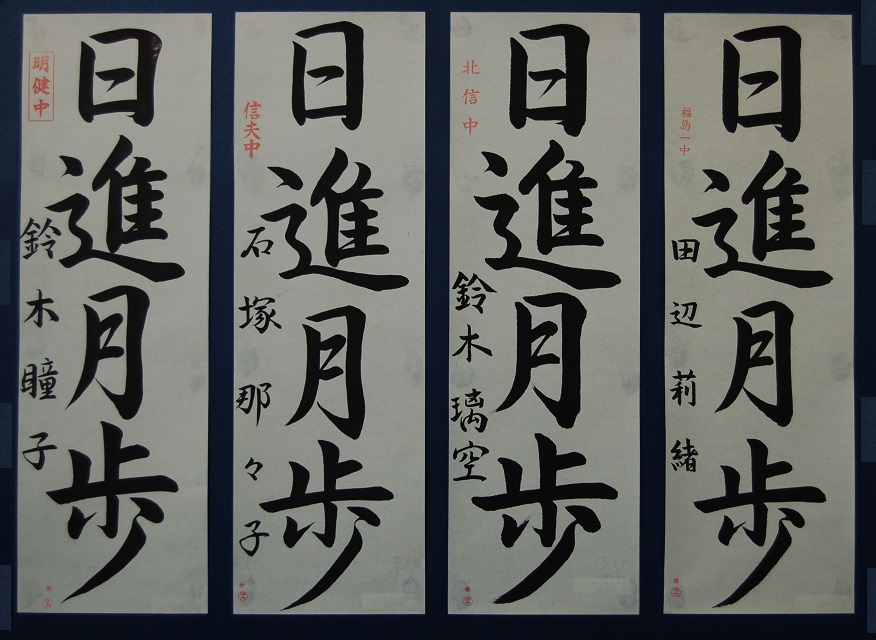 日進月歩
明健中
鈴木瞳子
日進月歩
信夫中
石塚那々子
日進月歩
北信中
鈴木璃空
日進月歩
福島一中
田辺莉緒